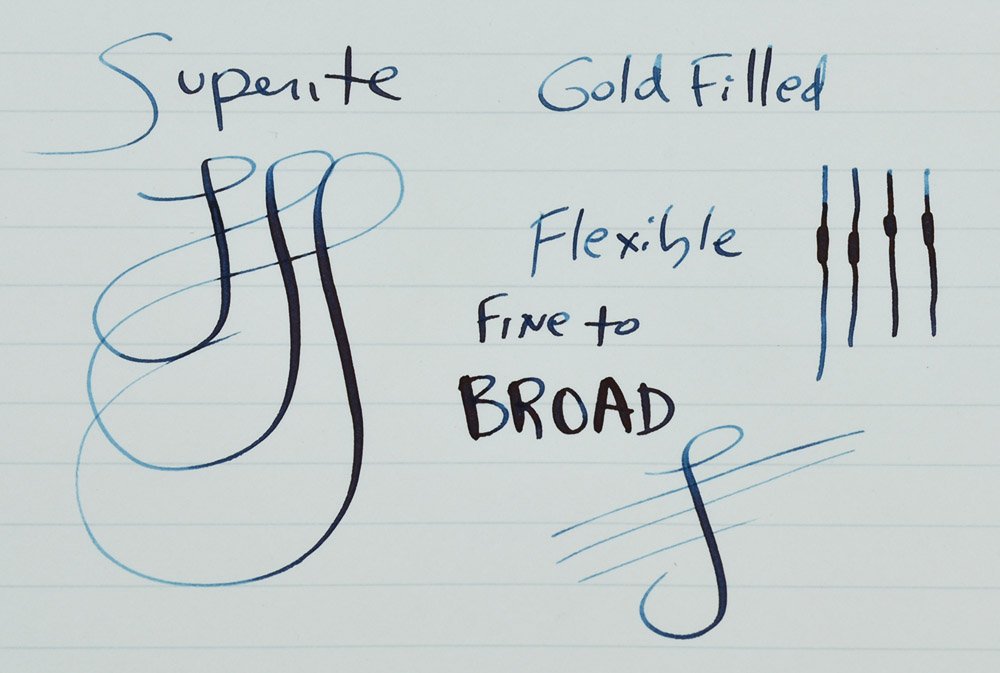 Superite Gold Filled
Flexible
Fine to
BROAD